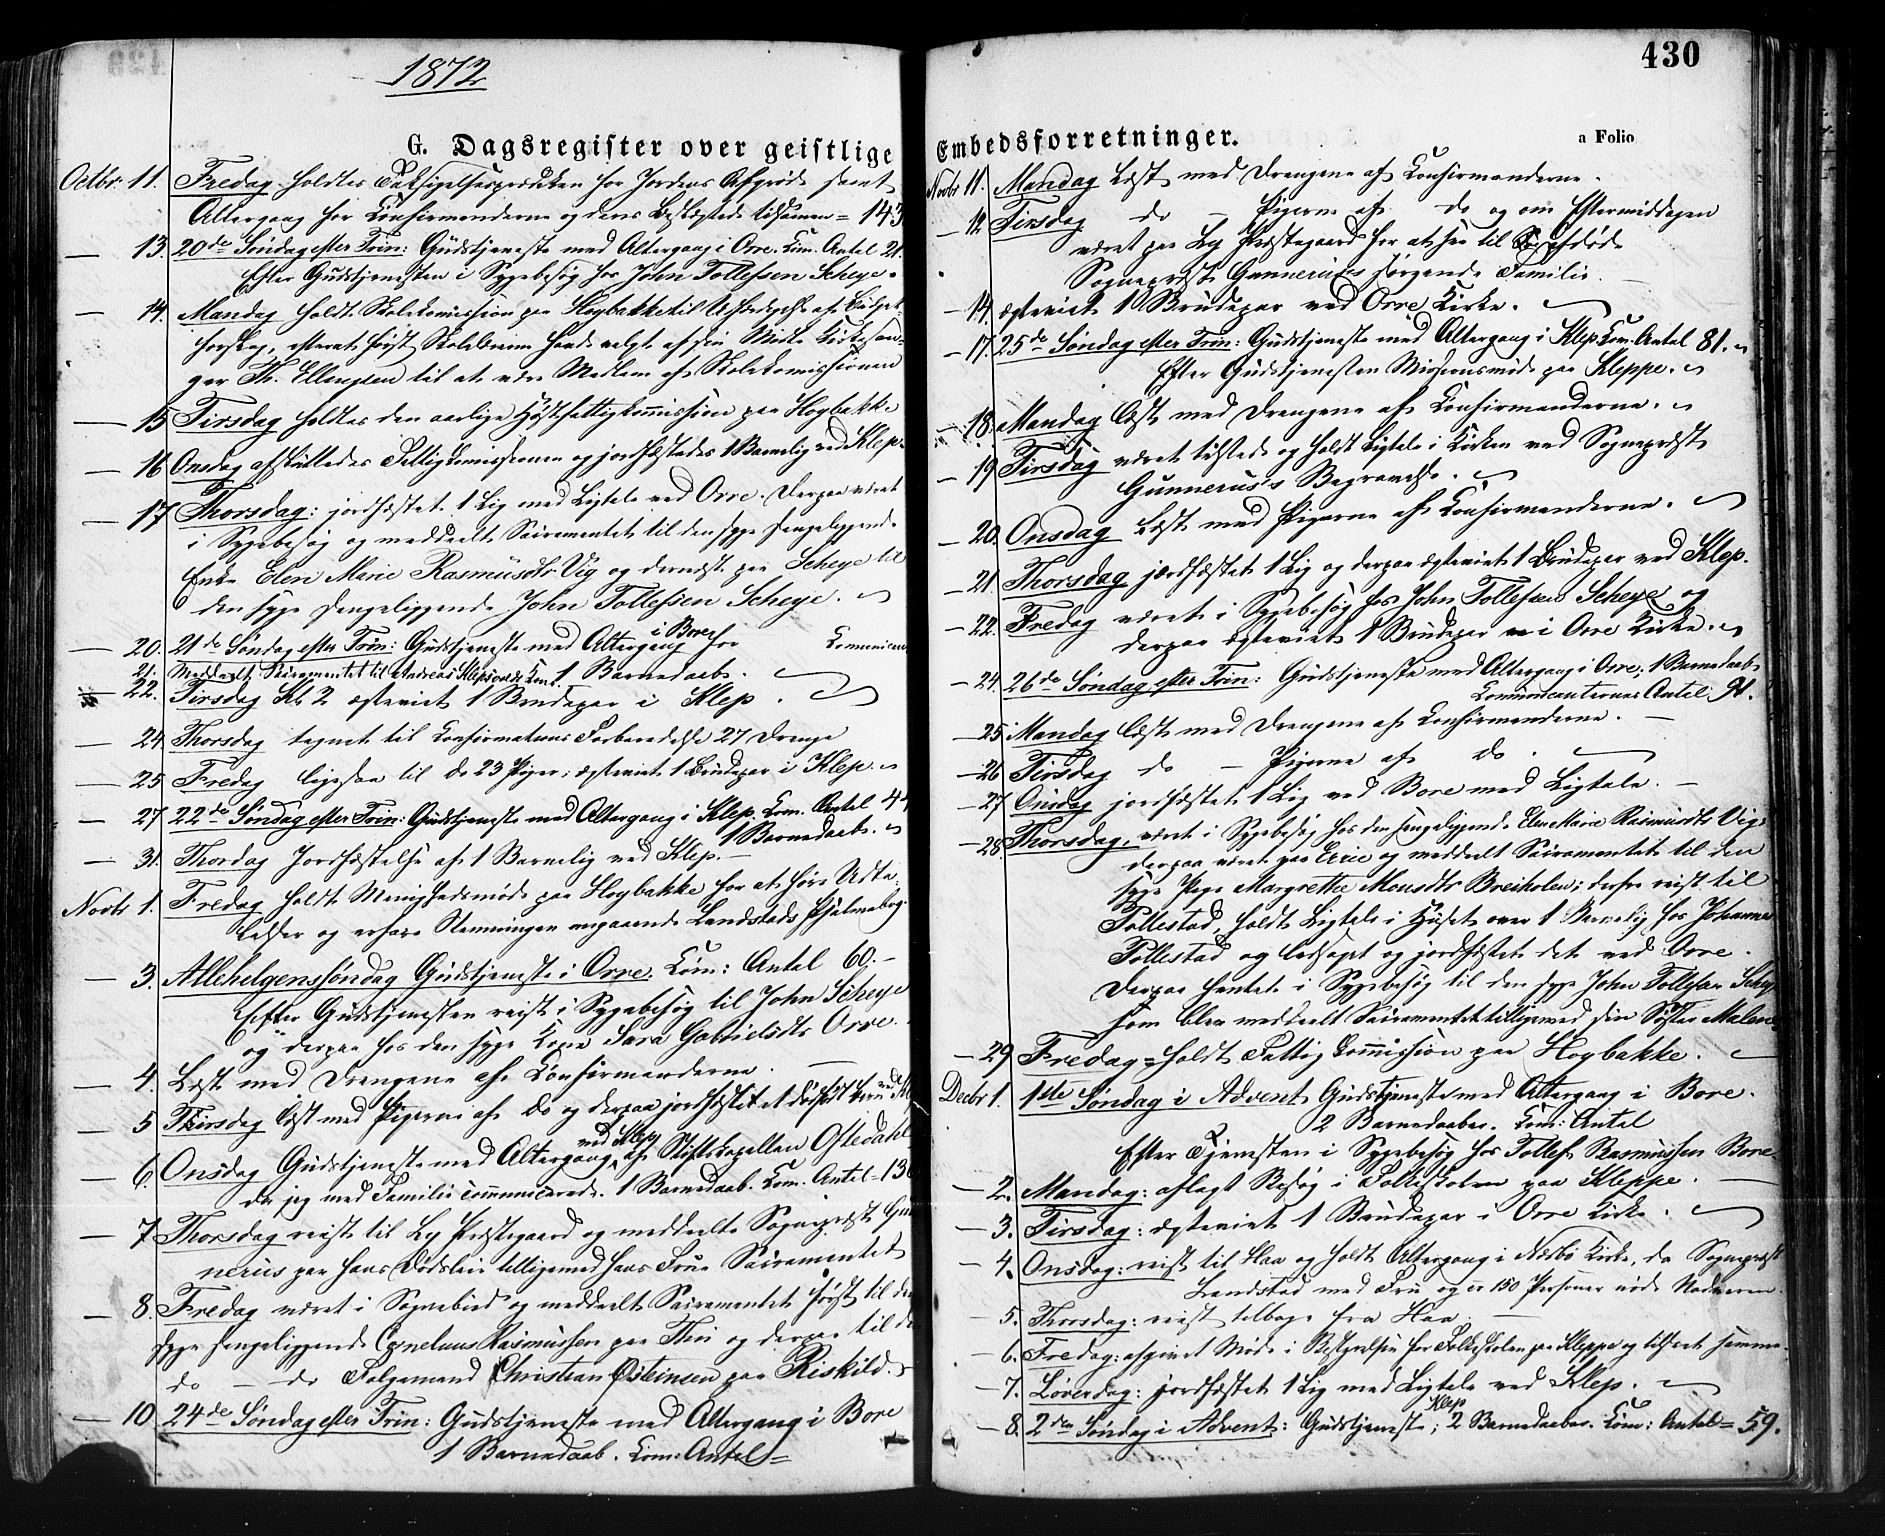 1872
G. Dagsregister over geistlige
Octbr: 11. Fredag holdtes Taksigelsesprædiken for Jordens Afgrøde samt
Altergang for Confirmanderne og deres Beslægtede tilsamen = 143
— 13. 20de Søndag efter Trin: Gudstjeneste med Altergang i Orre. Com. Antal 21.
Efter Gudstjenesten i Sygebesøg hos John Tollefsen Scheye.
— 14. Mandag holdt Skolekomission paa Hogbakke til af
forslag, Skoleloven valgte af sin Midte Kirkesan-
ger Th. Ellingsen til at være Medlem af Skolekomissionen
— 15 Tirsdag holdtes den aarlige Høstfattigkomission paa Hogbakke
— 16 Onsdag afsluttedes Fattigkomissionen og jordfæstedes 1 Barnelig ved Klep.
— 17 Thorsdag: jordfæstet 1 Lig med Ligtale ved Orre. Derpaa været
i Sygebesøg og meddeelt Sacramentet til den syge sengeliggende
Enke Elen Marie Rasmusdtr Vig og dernæst paa Scheye til
den syge sengeliggende John Tollefsen Scheye.
— 20. 21de Søndag efter Trin: Gudstjeneste med Altergang i Bore for Comunicanter
21. Meddeelt Sacramentet til Andreas 1 Barnedaab.
— 22. Tirsdag Kl. 2 ægteviet 1 Brudepar i Klep.
— 24 Thorsdag tegnet til Confirmations Forberedelse 27 Drenge
— 25 Fredag ligesaa til do 23 Piger; ægteviet 1 Brudepar i Klep.
— 27 22de Søndag efter Trin: Gudstjeneste med Altergang i Klep. Com. Antal 4
1 Barnedaab.
— 31. Thordag Jordfæstelse af 1 Barnelig ved Klep.
Novbr 1. Fredag holdt Menighedsmøde paa Hogbakke for at høre Udta-
lelser og erfare Stemningen angaaende Landstads Psalmebog.
— 3. Allehelgenssøndag Gudstjeneste i Orre. Com: Antal 60.
Efter Gudstjenesten reist i Sygebesøg til John Scheye
og derpaa hos den syge Kone Sara Gabrielsdtr Orre.
— 4. Læst med Drengene af Confirmanderne.
— 5 Tiirsdag læst med Pigerne af do og derpaa jordfæstet 1 dødfødt Barn ved Klep
— 6. Onsdag Gudstjeneste med Altergang ved Klep af Stiftskapellan Oftedahl
da jeg med Familie communicerede. 1 Barnedaab. Com. Antal = 13
— 7 Thorsdag reist til Ly Præstegaard og meddeelt Sognepræst Gun
nerus paa hans Dødsleie tilligemed hans Frue Sacramentet
— 8. Fredag været i Sognebud og meddeelt Sacramentet først til den
syge sengeliggende Cornelius Rasmussen paa Thu og derpaa til den
do — do Folgemand Christian Osteinsen paa Riskild.
— 10 24de Søndag efter Trin: Gudstjeneste med Altergang i Bore
1 Barnedaab. Com: Antal =
430
Embedsforretninger.
a Folio
Novbr 11. Mandag Læst med Drengene af Confirmanderne.
— 12 Tirsdag do — Pigerne af do og om Eftermiddagen
været paa Ly Præstegaard for at see til
Sognepræst Gunnerus's sørgende Familie.
— 14. ægteviet 1 Brudepar ved Orre Kirke.
— 17. 25de Søndag efter Trin: Gudstjeneste med Altergang i Klep Com. Antal 81.
Efter Gudstjenesten Misionsmøde paa Kleppe.
— 18. Mandag Læst med Drengene af Confirmanderne.
— 19 Tirsdag været tilstede og holdt Ligtale i Kirken ved Sognepræst
Gunnerus's Begravelse.
— 20. Onsdag Læst med Pigerne af Confirmanderne.
— 21. Thorsdag jordfæstet 1 Lig og derpaa ægteviet 1 Brudepar ved Klep.
— 22. Fredag været i Sygebesøg hos John Tollefsen Scheye og
derpaa ægteviet 1 Brudepar i Orre Kirke.
— 24. 26de Søndag efter Trin: Gudstjeneste med Altergang i Orre, 1 Barnedaab
Communicanternes Antal 91.
— 25 Mandag Læst med Drengene af Confirmanderne.
— 26 Tirsdag do — Pigerne af do.
— 27 Onsdag jordfæstet 1 Lig ved Bore med Ligtale.
— 28 Thorsdag, været i Sygebesøg hos den sengeliggende Elen Marie Rasmusdtr Vig:
derpaa været paa og meddeelt Sacramentet til den
syge Pige Margrethe Mousdtr Breiholen; derfra reist til
Tollestad, holdt Ligtale i Huset over 1 Barnelig hos Johannes
Tollestad og ledsaget og jordfæstet det ved Orre.
Derpaa hentet i Sygebesøg til den syge John Tollefsen Scheye
som blev meddeelt Sacramentet tilligemed sin Søster Malene
— 29 Fredag = holdt Fattig Commission paa Hogbakke.
Decbr 1. 1ste Søndag i Advent Gudstjeneste med Altergang i Bore.
2 Barnedaaber. Com: Antal
Efter Tjenesten i Sygebesøg hos Tollef Rasmussen Bore
— 2. Mandag: aflagt Besøg i Folkeskolen paa Kleppe.
— 3. Tirsdag: ægteviet 1 Brudepar i Orre Kirke.
— 4. Onsdag: reist til Haa og holdt Altergang i Næsbø Kirke, da Sognepræst
Landstad med Fru og ca 150 Personer nøde Nadveren.
5. Thorsdag: reist tilbage fra Haa.
— 6. Fredag: afgivet Møde i Bestyrelsen for Folkeskolen paa Kleppe og tilseet samme.
— 7. Løverdag: jordfæstet 1 Lig med Ligtale ved Klep.
— 8. 2den Søndag i Advent: Gudstjeneste Klep; 2 Barnedaaber. Com: Antal = 59.